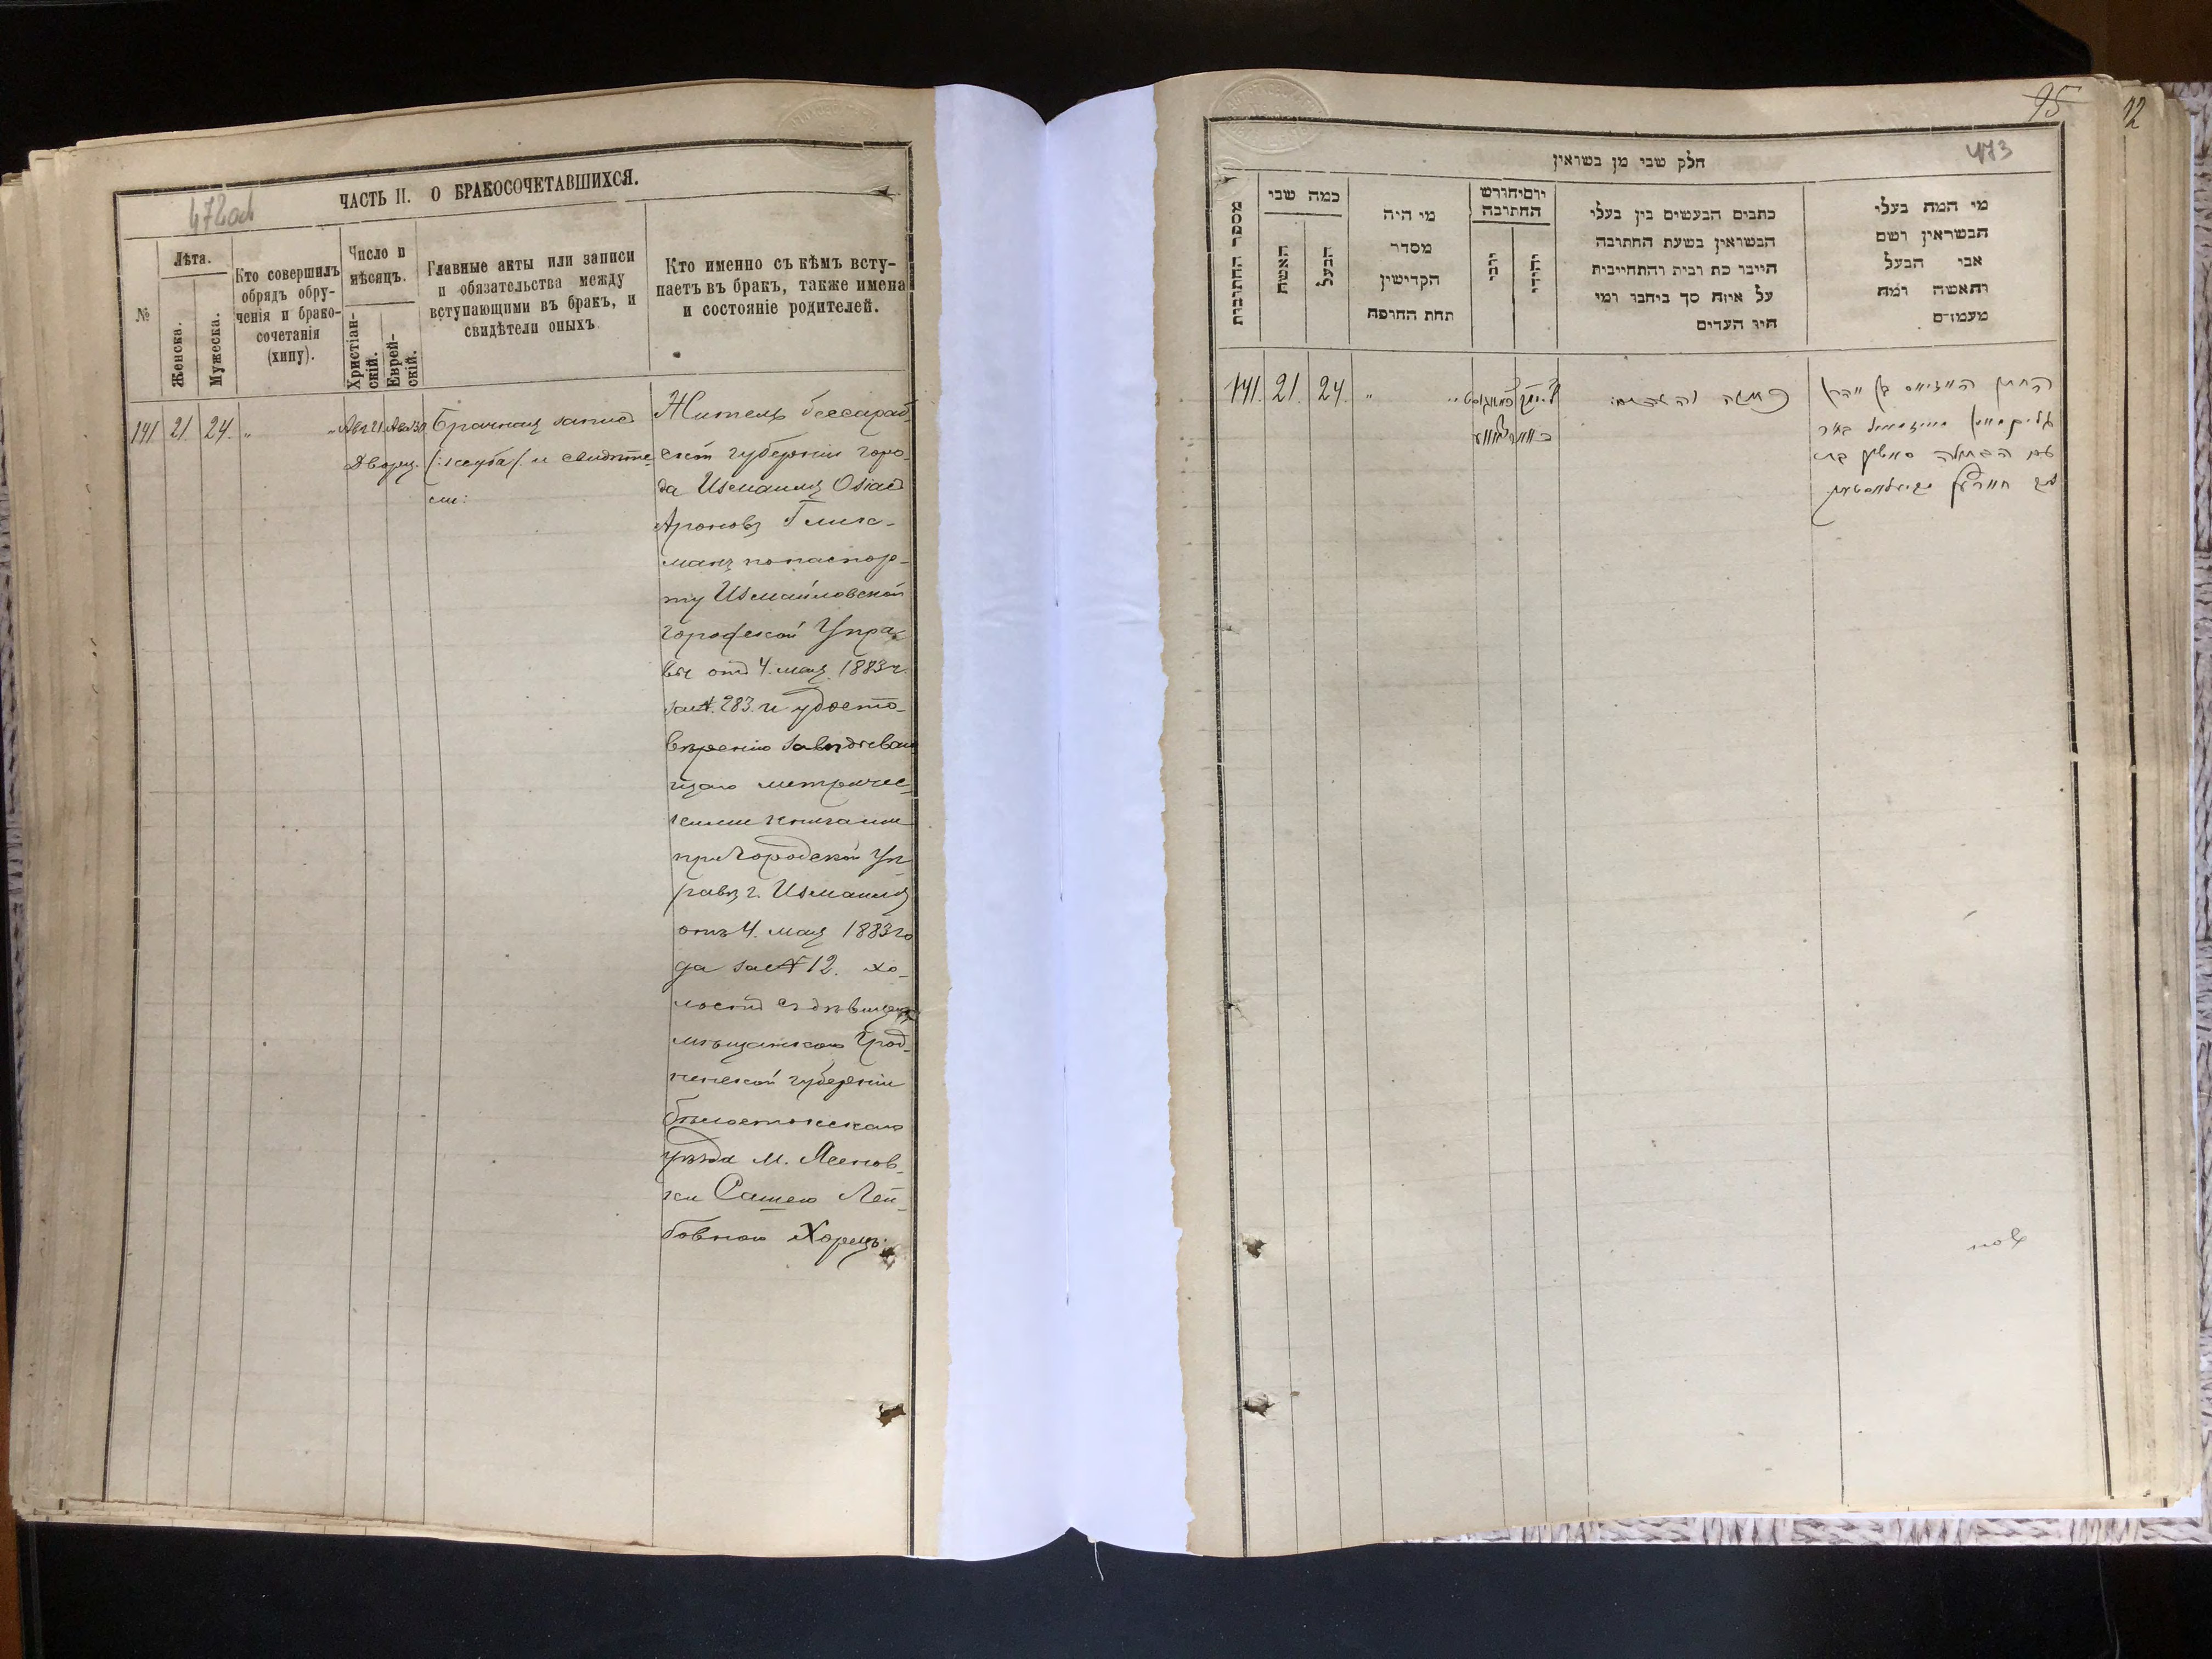 472об
ЧАСТЬ II. О БРАКОСОЧЕТАВШИХСЯ.
№
Лѣта.
Женска.
Мужеска.
Кто совершилъ
обрядъ обру-
ченія и брако-
сочетанія
(хипу).
Число и
мѣсяцъ.
Христіан-
скій.
Еврей-
скій.
Главные акты или записи
и обязательства между
вступающими въ бракъ, и
свидѣтели оныхъ
Кто именно съ кѣмъ всту-
паетъ въ бракъ, также имена
и состояніе родителей.
141. 21. 24. " "
Авг 21
Брачная запись
/:ксуба/: и свидѣте-
ли:
Житель бессараб-
ской губерніи горо-
да Измаила Озіасъ
Ароновъ Глик-
манъ по паспор-
ту Измаиловской
городской Упра-
вы отъ 4. мая 1883 г.
за №. 283. и удосто-
вѣренію завѣдываю
щаго метричес-
кими книгами
при Городской Уп
равѣ г. Измаила
отъ 4. мая 1883 го
да за № 12. хо-
лостъ съ дѣвицею
мѣщанкою Грод-
ненской губерніи
бѣлостокскаго
уѣзда м. Яснов-
ки Сашею Лей-
бовною Хорецъ.
95
12
473
חלק שני מן נשואין
מספר החתונות
כמה שני
האשה
הבעל
מי היה
מסדר
הקדישין
תחת החופה
יום וחודש
החתונה
כתבים הנעשים בין בעלי
הנשואין בשעת החתונה
היינו כת ובית והתחייבית
על איזה סך ביחבו ומי
היו העדים
מי המה בעלי
הנשואין ושם
אבי הבעל
והאשה ומה
מעמדם
141. 21. 24. " "
כתובה והעדים:
החתן ... בן אהרן
גליקמאן
עם הבתולה ... בת